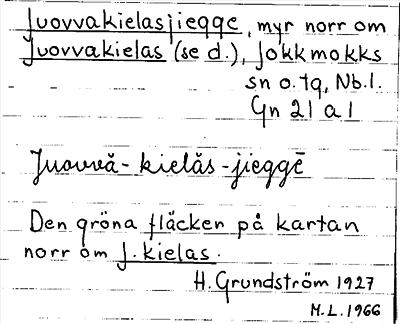 Juovvakielasjiegge, myr norr om
Juovvakielas (se d.), Jokkmokks
sn o. tq, Nb.l.
Gn 21 a 1
Juovvă-kielăs-jieggē
Den gröna fläcken på kartan
norr om J. kielas.
H. Grundström 1927
M.L. 1966